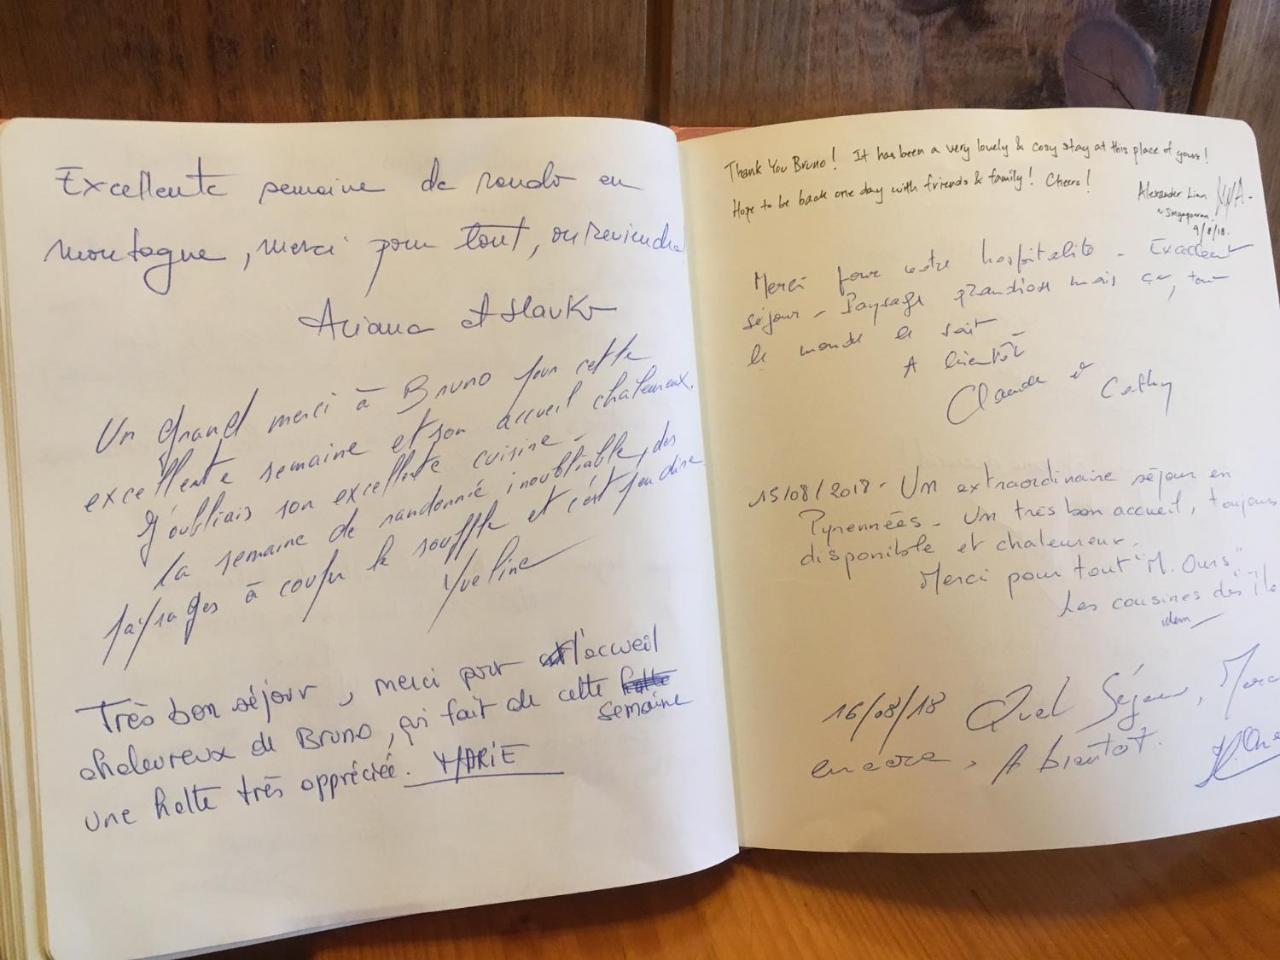 Excellente semaine de rando en
montagne, merci pour tout, on reviendra
Ariana et Slavko
Un grand merci à Bruno pour cette
excellente semaine et son accueil chaleureux.
J'oubliais son excellente cuisine -
la semaine de randonnée inoubliable, des
paysages à couper le souffle et c'est peu dire
Yveline
Très bon séjour, merci pour l'accueil
chaleureux de Bruno, qui fait de cette
semaine
une halte très appréciée. MARIE
Thank You Bruno! It has been a very lovely & cosy stay at this place of yours!
Hope to be back one day with friends & family! Cheers!
Alexander Lian
Singaporean
9/8/18.
Merci pour votre hospitalité - Excellent
séjour - Paysage grandiose mais ça, tout
le monde le sait -
A bientôt
Claude et Cathy
15/08/2018 - Un extraordinaire séjour en
Pyrennées - Un très bon accueil, toujours
disponible et chaleureux.
Merci pour tout "M. Ours"
Les cousines des îles
idem
16/08/18 Quel Séjour, Merci
encore, A bientôt.